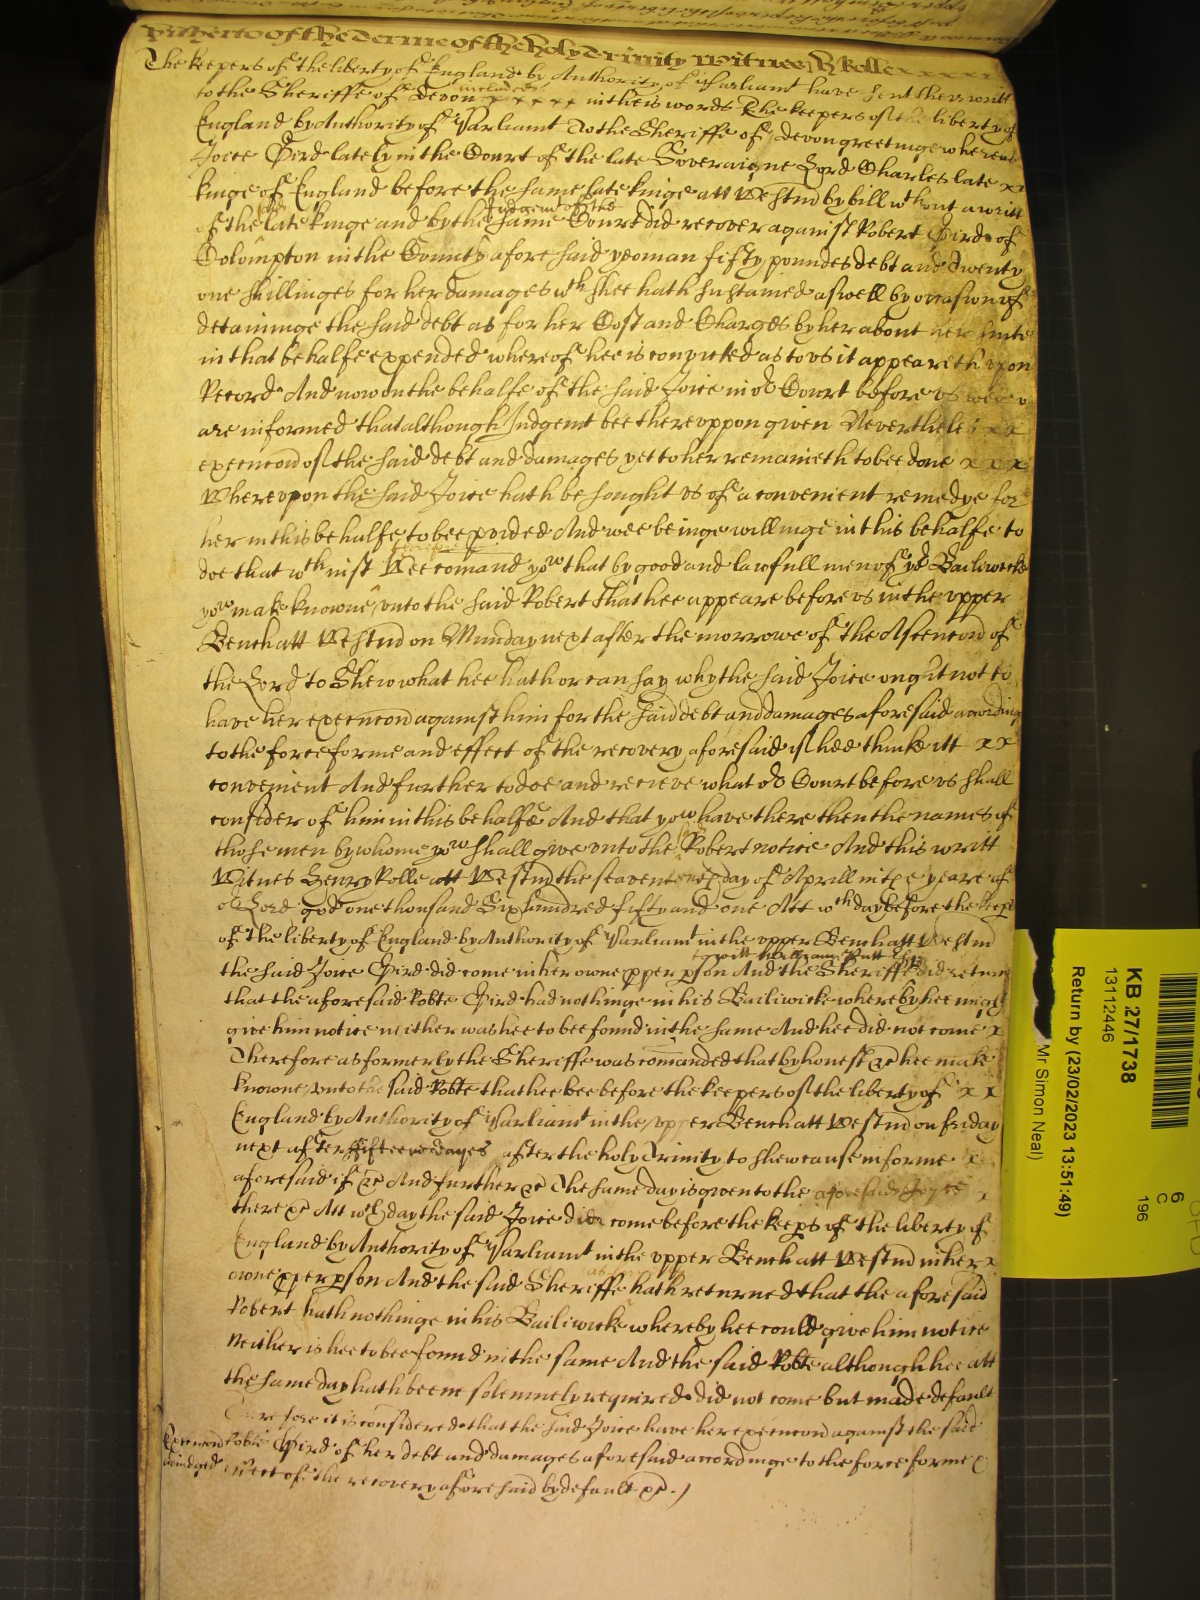 Perteto of the terme of the holy Trinity Witnes H Rolle x x x x x
The keepers of the liberty of England by Authority of Parliamt have sent theis writt
to the Sheriffe of Devon included x x x x in theis words The keepers of the liberty of
England by Authority of Parliamt To the Sheriffe of Devon greetinge whereas
Joice Bird lately in the Court of the late Soveraigne Lord Charles late xx
kinge of England before the same late kinge att Westm by bill wthout a writt
of the late kinge and by the Judgemt of the same Court did recover against Robert Bird of
Colompton in the County aforesaid yeoman fifty poundes debt and twenty
one shillinges for her damages wch shee hath sustained aswell by occasion of
detaininge the said debt as for her Cost and Charges by her about her suite
in that behalfe expended whereof hee is convicted as to us it appeareth upon
Record And now on the behalfe of the said Joice in or Court before us wee
are informed that although Judgemt bee thereuppon given Neverthelesse x x
execucon of the said debt and damages yet to her remaineth to bee done x x x
Whereupon the said Joice hath besought us of a convenient remedye for
her in this behalfe to bee pvided And wee beinge willinge in this behalfe to
doe that wch is just Wee comand yow that by good and lawfull men of yor Bailiwicke
yow make knowne unto the said Robert That hee appeare before us in the upper
Bench att Westm on Munday next after the morrowe of the Ascencon of
the Lord to Shew what hee hath or can say why the said Joice ought not to
have her execucon against him for the said debt and damages aforesaid acording
to the force forme and effect of the recovery aforesaid if shee thinke itt x x
convenient And further to doe and recieve what or Court before us shall
consider of him in this behalfe And that yow have there then the names of
those men by whome yow shall give unto the Robert notice And this writt
Witnes Henry Rolle att Westm the seaventeenth day of Aprill in the yeare of
or Lord god one thousand Six hundred fifty and one Att wch day before the keeps
of the liberty of England by Authority of Parliamt in the upper Bench att Westm
the said Joice Bird did come in her owne pper pson And the Sheriffe to witt William Putt did returne
that the aforesaid Robte Bird had nothinge in his Bailiwicke whereby hee might
give him notice neither was hee to bee found in the same And hee did not come x
Therefore as formerly the Sheriffe was comanded that by honest &c hee make
knowne unto the said Robte that hee bee before the keepers of the liberty of x x
England by Authority of Parliamt in the upper Bench att Westm on friday
next after fifteene dayes after the holy Trinity to shew cause in forme x
aforesaid if &c And further &c The same day is given to the aforesaid Joyce x
there &c Att wch day the said Joice did come before the keeps of the liberty of
England by Authority of Parliamt in the upper Bench att Westm in her x
owne pper pson And the said Sheriffe hath returned that the aforesaid
Robert hath nothinge in his Bailiwicke whereby hee could give him notice
Neither is hee to bee found in the same And the said Robte although hee att
the same day hath beene solemnely required did not come but made default
Therefore it is considered that the said Joice have her execucon against the said
Execucon
adiudged
Robte Bird of her debt and damages aforesaid accordinge to the force forme &
effect of the recovery aforesaid by default &c
KB 27/1738
13112446
Return by (23/02/2023 13:51:49)
Mr Simon Neal)
6
C
196